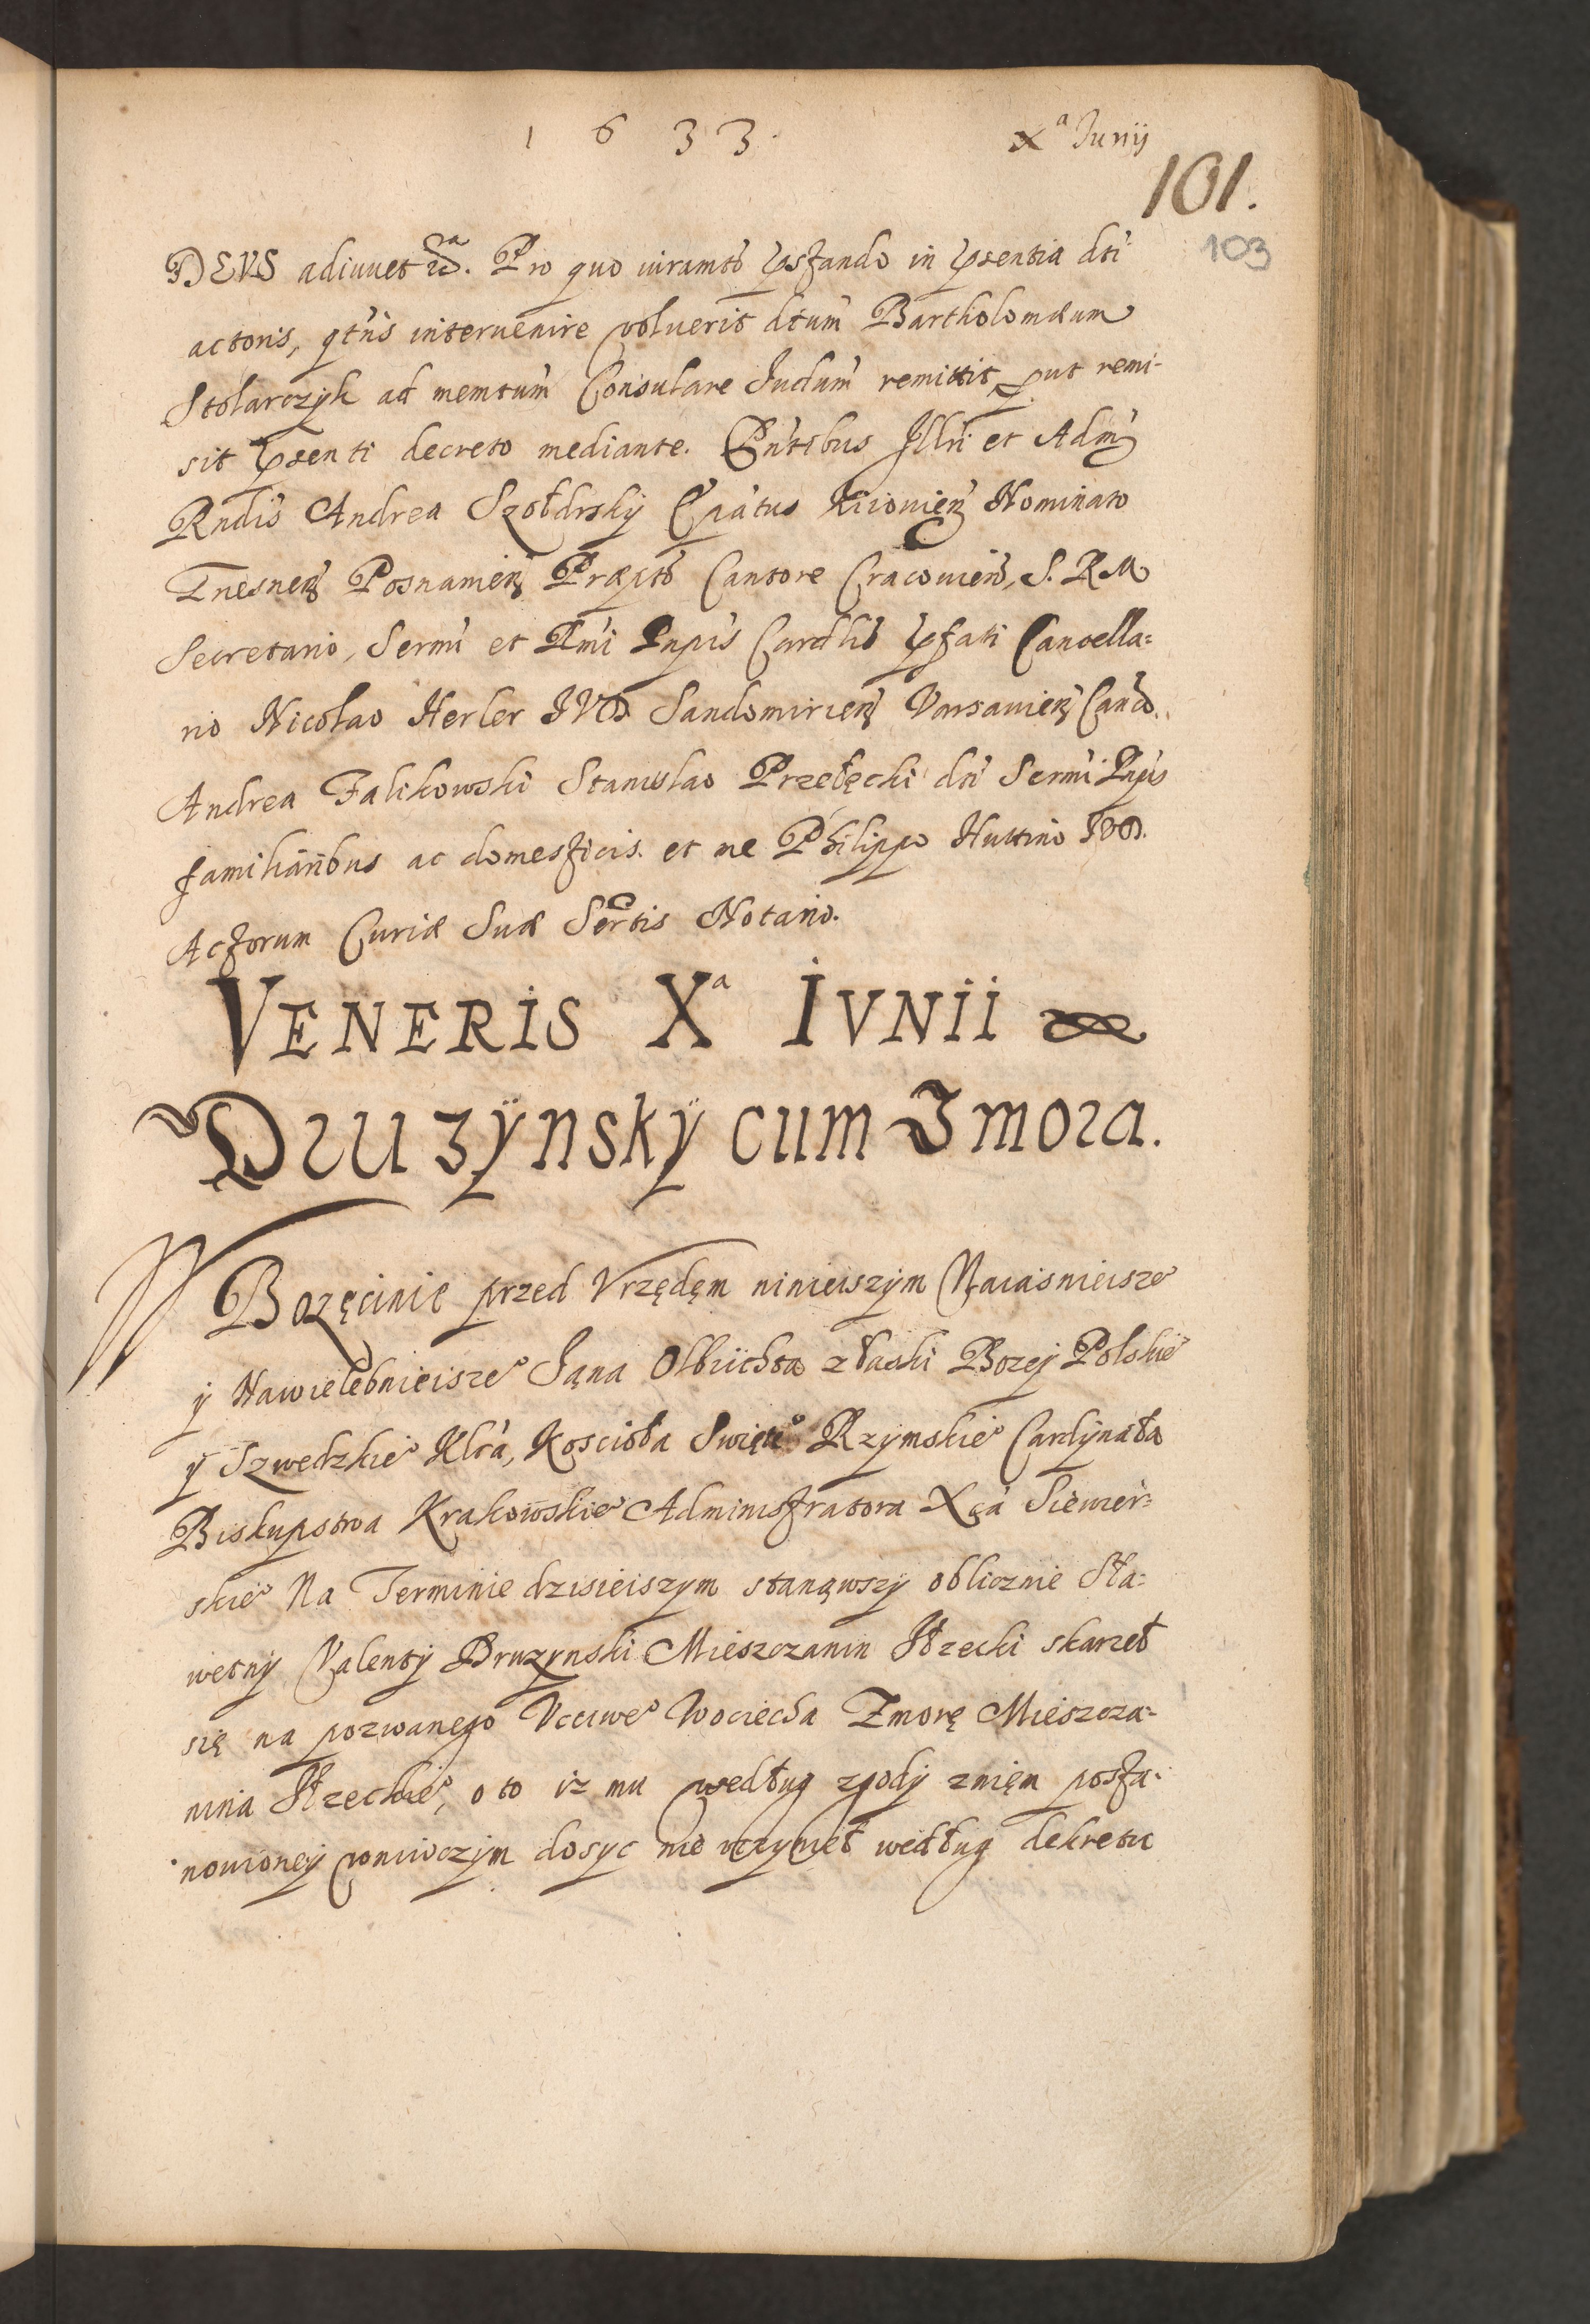 1633. Xª Junij
101.
103
DEVS adiuuet etcª. Pro quo iuramto psstando in psentia dti
actoris, qtnis interuenire voluerit dtum Bartholomæum
Stolarczyk ad memtum Consulare Judum remittit, put remi-
sit psenti decreto mediante. Pntibus Jllri et Adm
Rndis Andrea Szołdrsky Epatus Kiiouien Nominato
Gnesnen Posnanien Præpto Cantore Cracouien, S. R M
Secretario, Sermi et Rmi Pnpis Cardlis pfati Cancella=
rio Nicolao Herler JVD Sandomirien Varsauien Canco.
Andrea Falikowski Stanislao Przełęcki dti Sermi Pnpis
familiaribus ac domesticis. et me Philippo Huttino JVD.
Actorum Curiæ Suæ Sertis Notario.
VENERIS Xª IVNII
Druzÿnskÿ cum Zmora.
W Bozęcinie przed Vrzędęm ninieiszym Naiasnieisze°
ÿ Nawielebnieisze° Jana Olbrichta z łaski Bozej Polskie°
ÿ Szwedzkie° Klra, Koscioła Swięte° Rzymskie° Cardÿnała
Biskupstwa Krakowskie° Administratora Xcá Siewier=
skie° Na Terminie dzisieiszym stanąwszÿ oblicznie Sła=
wetnÿ Valentÿ Druzynski Mieszczanin Jłzecki skarzeł
się na pozwanego Vcciwe° Wociecha Zmorę Mieszcza=
nina Jłzeckie°, o to iz mu według zgodÿ znięm posta-
nowioneÿ wniwczÿm dosyc nie vczynieł według dekretu